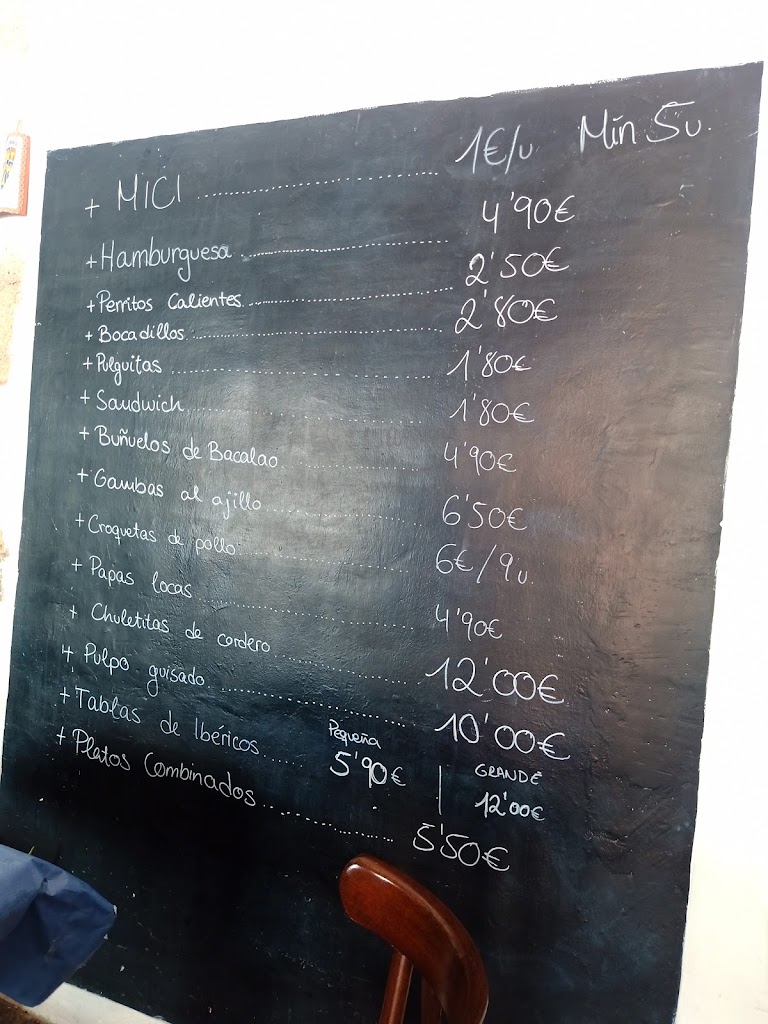 + MICI ........ 1€/u. Mín 5u.
+ Hamburguesa ........ 4'90€
+ Perritos Calientes ........ 2'50€
+ Bocadillos ........ 2'80€
+ Pulguitas ........ 1'80€
+ Sandwich ........ 1'80€
+ Buñuelos de Bacalao ........ 4'90€
+ Gambas al ajillo ........ 6'50€
+ Croquetas de pollo ........ 6€/9u.
+ Papas locas ........ 4'90€
+ Chuletitas de cordero ........ 12'00€
+ Pulpo guisado ........ 10'00€
+ Tablas de Ibéricos ........ Pequeña 5'90€ | GRANDE 12'00€
+ Platos Combinados ........ 5'50€